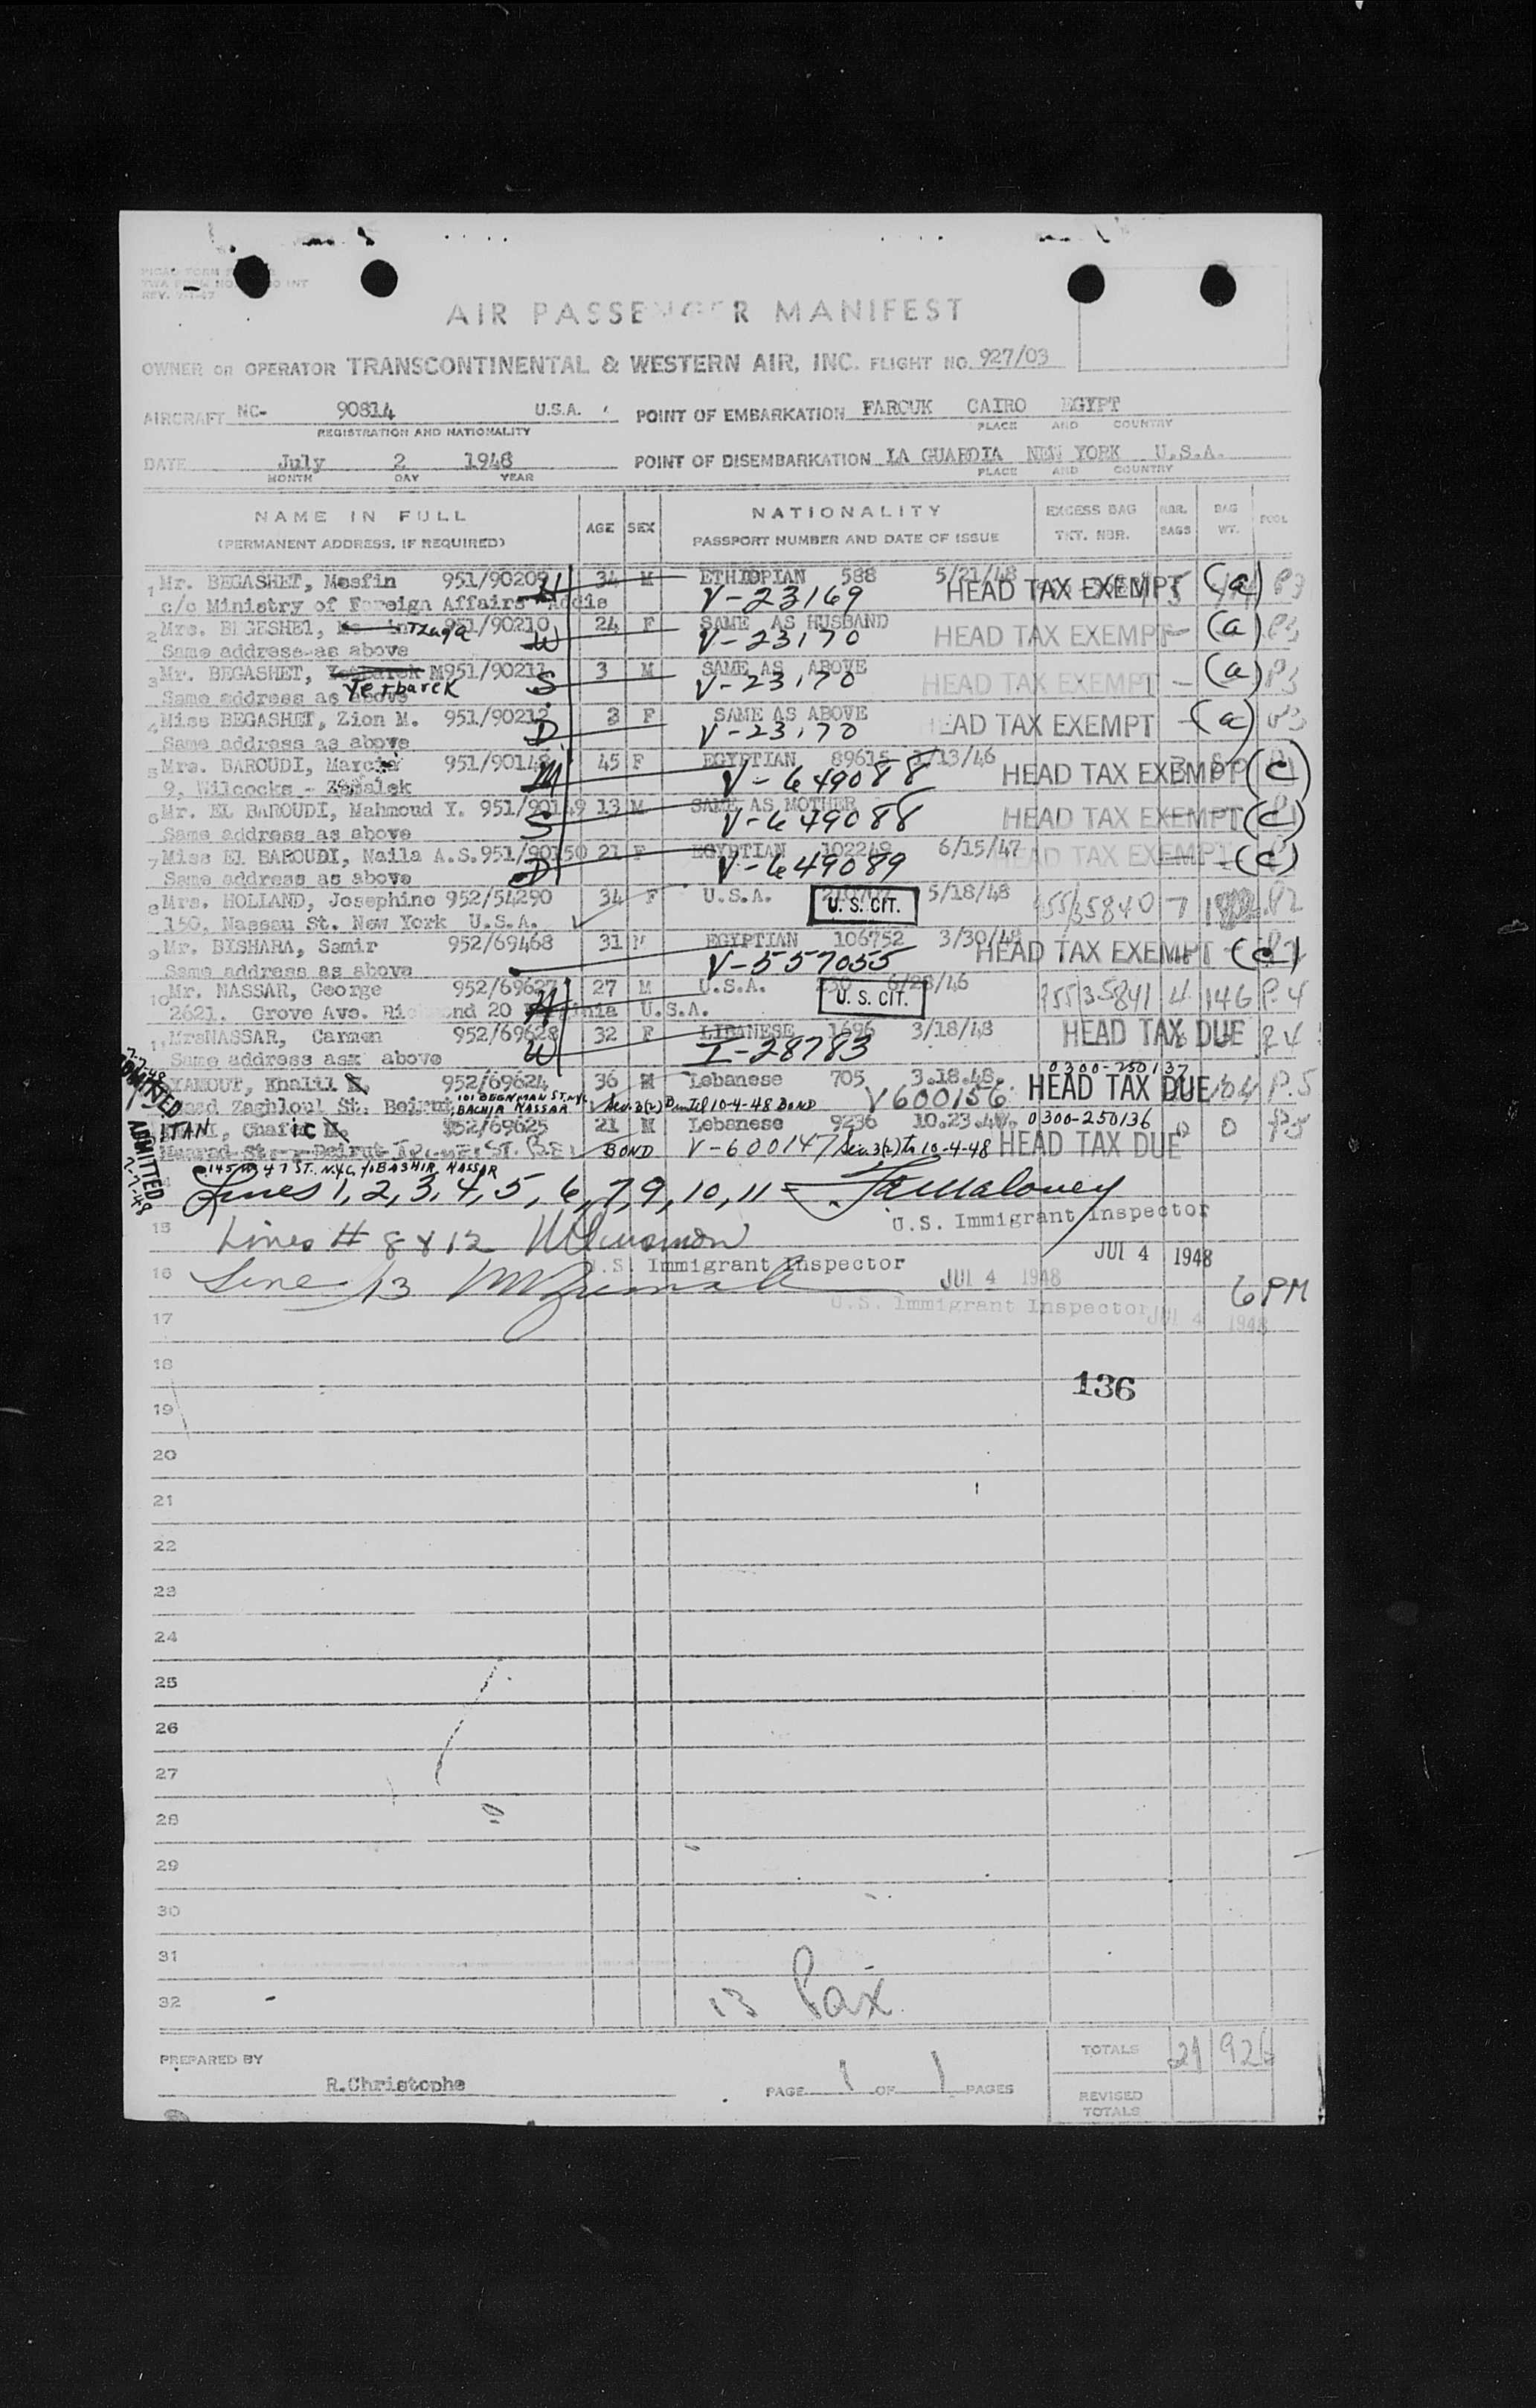 REV. 7-1-47
AIR PASSENGER MANIFEST
OWNER OR OPERATOR TRANSCONTINENTAL & WESTERN AIR, INC. FLIGHT NO. 927/03
AIRCRAFT NC- 90814 U.S.A. POINT OF EMBARKATION FAROUK CAIRO EGYPT
REGISTRATION AND NATIONALITY PLACE AND COUNTRY
DATE July 2 1948 POINT OF DISEMBARKATION LA GUARDIA NEW YORK U.S.A.
MONTH DAY YEAR PLACE AND COUNTRY
NAME IN FULL AGE SEX NATIONALITY EXCESS BAG NBR. BAG POOL
(PERMANENT ADDRESS, IF REQUIRED) PASSPORT NUMBER AND DATE OF ISSUE TKT. NBR. BAGS WT.
1 Mr. BEGASHET, Mesfin 951/90209 H 34 M ETHIOPIAN 588 5/21/48 HEAD TAX EXEMPT (a) P3
c/o Ministry of Foreign Affairs Addis V-23169
2 Mrs. BEGESHET, Tzuga 951/90210 W 24 F SAME AS HUSBAND HEAD TAX EXEMPT (a) P3
Same address as above V-23170
3 Mr. BEGASHET, M 951/90211 S 3 M SAME AS ABOVE HEAD TAX EXEMPT (a) P3
Same address as above Yetbarek V-23170
4 Miss BEGASHET, Zion M. 951/90212 D 3 F SAME AS ABOVE HEAD TAX EXEMPT (a) P3
Same address as above V-23170
5 Mrs. BAROUDI, Marcia 951/90148 M 45 F EGYPTIAN 89615 1/13/46 HEAD TAX EXEMPT (c)
9, Wilcocks - Zamalek V-649088
6 Mr. EL BAROUDI, Mahmoud Y. 951/90149 S 13 M SAME AS MOTHER HEAD TAX EXEMPT (c)
Same address as above V-649088
7 Miss EL BAROUDI, Naila A.S. 951/90150 D 21 F EGYPTIAN 102249 6/15/47 HEAD TAX EXEMPT (c)
Same address as above V-649089
8 Mrs. HOLLAND, Josephine 952/54290 34 F U.S.A. U.S. CIT. 5/18/48 955/35840 7 P2
150, Nassau St. New York U.S.A.
9 Mr. BISHARA, Samir 952/69468 31 M EGYPTIAN 106752 3/30/48 HEAD TAX EXEMPT (c)
Same address as above V-557055
10 Mr. NASSAR, George 952/69627 H 27 M U.S.A. 230 6/28/46 U.S. CIT. 955/35841 4 146 P.4
2621. Grove Ave. Richmond 20 Virginia U.S.A.
11 Mrs NASSAR, Carmen 952/69628 W 32 F LIBANESE 1696 3/18/48 HEAD TAX DUE P4
Same address ask above I-28783
7-7-48 ADMITTED YAMOUT, Khalil 952/69624 36 M Lebanese 705 3.18.48. 0300-250137 HEAD TAX DUE 104 P.5
Saad Zaghloul St. Beirut 101 BEEKMAN ST. NYC BACHIR NASSAR Sec 3(2) until 10-4-48 BOND V600156
ITANI, Chafic 952/69625 21 M Lebanese 9236 10.23.47. 0300-250136 0 0 P5
Beirut BOND V-600147 Sec 3(2) to 10-4-48 HEAD TAX DUE
ADMITTED 7-7-48
145 W 47 ST. N.Y.C. c/o BASHIR NASSAR
Lines 1, 2, 3, 4, 5, 6, 7, 9, 10, 11 - Maloney
15 U.S. Immigrant Inspector
Lines # 8 & 12 JUL 4 1948
16 U.S. Immigrant Inspector JUL 4 1948
Line 13 6 PM
17 U.S. Immigrant Inspector JUL 4 1948
18
136
19
20
21
22
23
24
25
26
27
28
29
30
31
13 Pax
32
PREPARED BY R.Christophe PAGE 1 OF 1 PAGES TOTALS 21 926
REVISED TOTALS